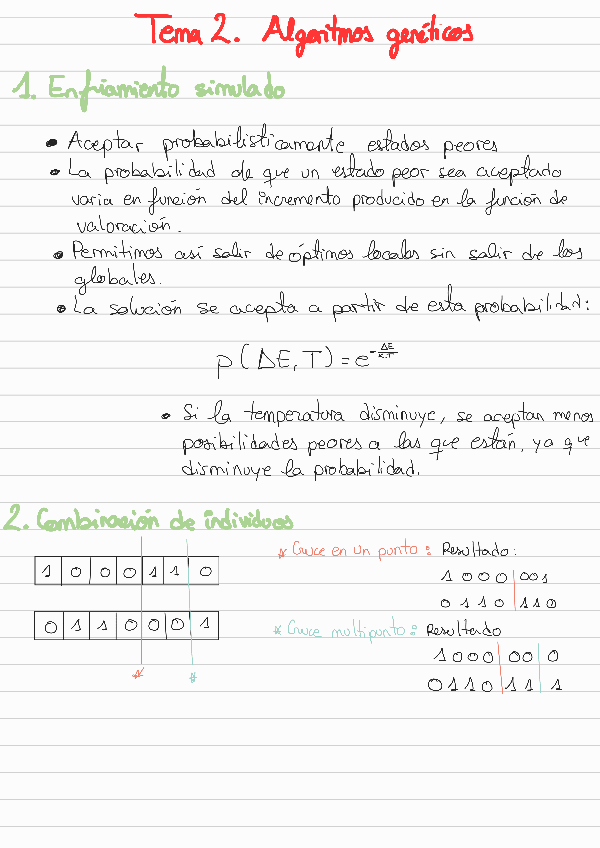 Tema 2. Algoritmos genéticos
1. Enfriamiento simulado
• Aceptar probabilísticamente estados peores
• La probabilidad de que un estado peor sea aceptado
varia en función del incremento producido en la función de
valoración.
• Permitimos así salir de óptimos locales sin salir de los
globales.
• La solución se acepta a partir de esta probabilidad:
p(ΔE, T) = e^-ΔE/K.T
• Si la temperatura disminuye, se aceptan menos
posibilidades peores a las que están, ya que
disminuye la probabilidad.
2. Combinación de individuos
1 0 0 0 1 1 0
0 1 1 0 0 0 1
* *
* Cruce en un punto: Resultado:
1 0 0 0 0 0 1
0 1 1 0 1 1 0
* Cruce multipunto: Resultado
1 0 0 0 0 0 0
0 1 1 0 1 1 1